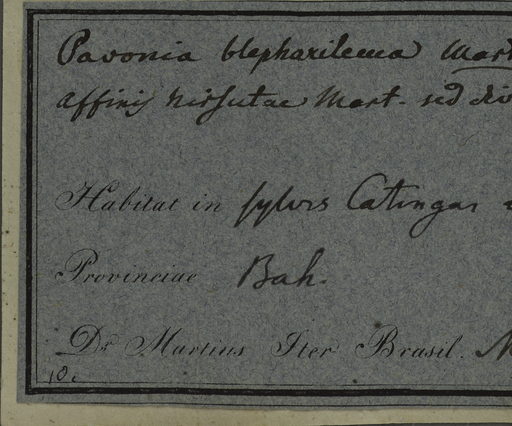 Pavonia blepharilema Mart
affinis hirsutae Mart. sed div
Habitat in sylvis Catingas
Provinciae Bah.
Dr. Martius Iter Brasil.